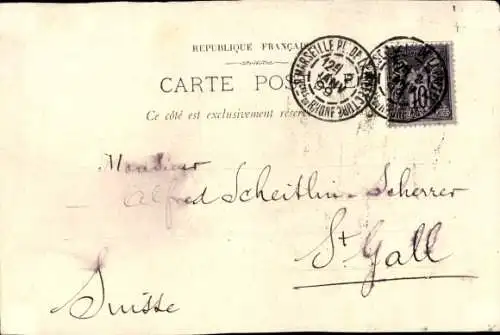 RÉPUBLIQUE FRANÇAI
CARTE POS
Ce côté est exclusivement réserv
MARSEILLE PL. DE LA PREFECTURE
JANV
99
BOUCHES DU RHONE
10
Monsieur
Alfred Scheitlin-Scherrer
St Gall
Suisse